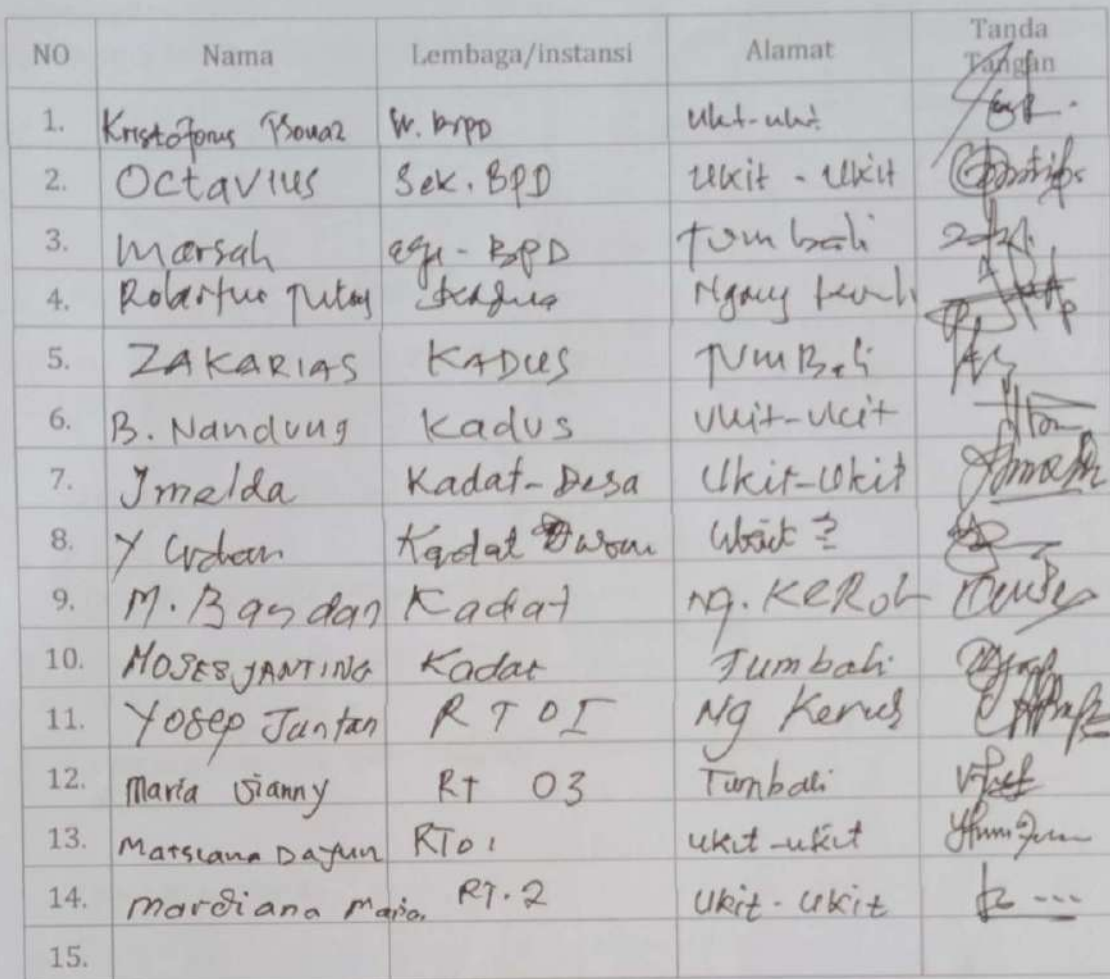 NO Nama Lembaga/instansi Alamat Tanda Tangan
1. Kristoforus W. BPD Ukit-ukit
2. Octavius Sek. BPD Ukit - Ukit
3. Marsah BPD Tumbali
4. Robertus Ngang
5. ZAKARIAS KADUS TUMBali
6. B. Nandung Kadus Ukit-Ukit
7. Imelda Kadat-Desa Ukit-Ukit
8. Y Kadat
9. M. Bagdan Kadat NG. KEROH
10. MOSES JANTING Kadat Tumbali
11. Yosep Juntan RT 01 Ng
12. Maria Vianny RT 03 Tumbali
13. Marsiana Dayun RT 01 Ukit-ukit
14. Mardiana Maria RT. 2 Ukit - Ukit
15.